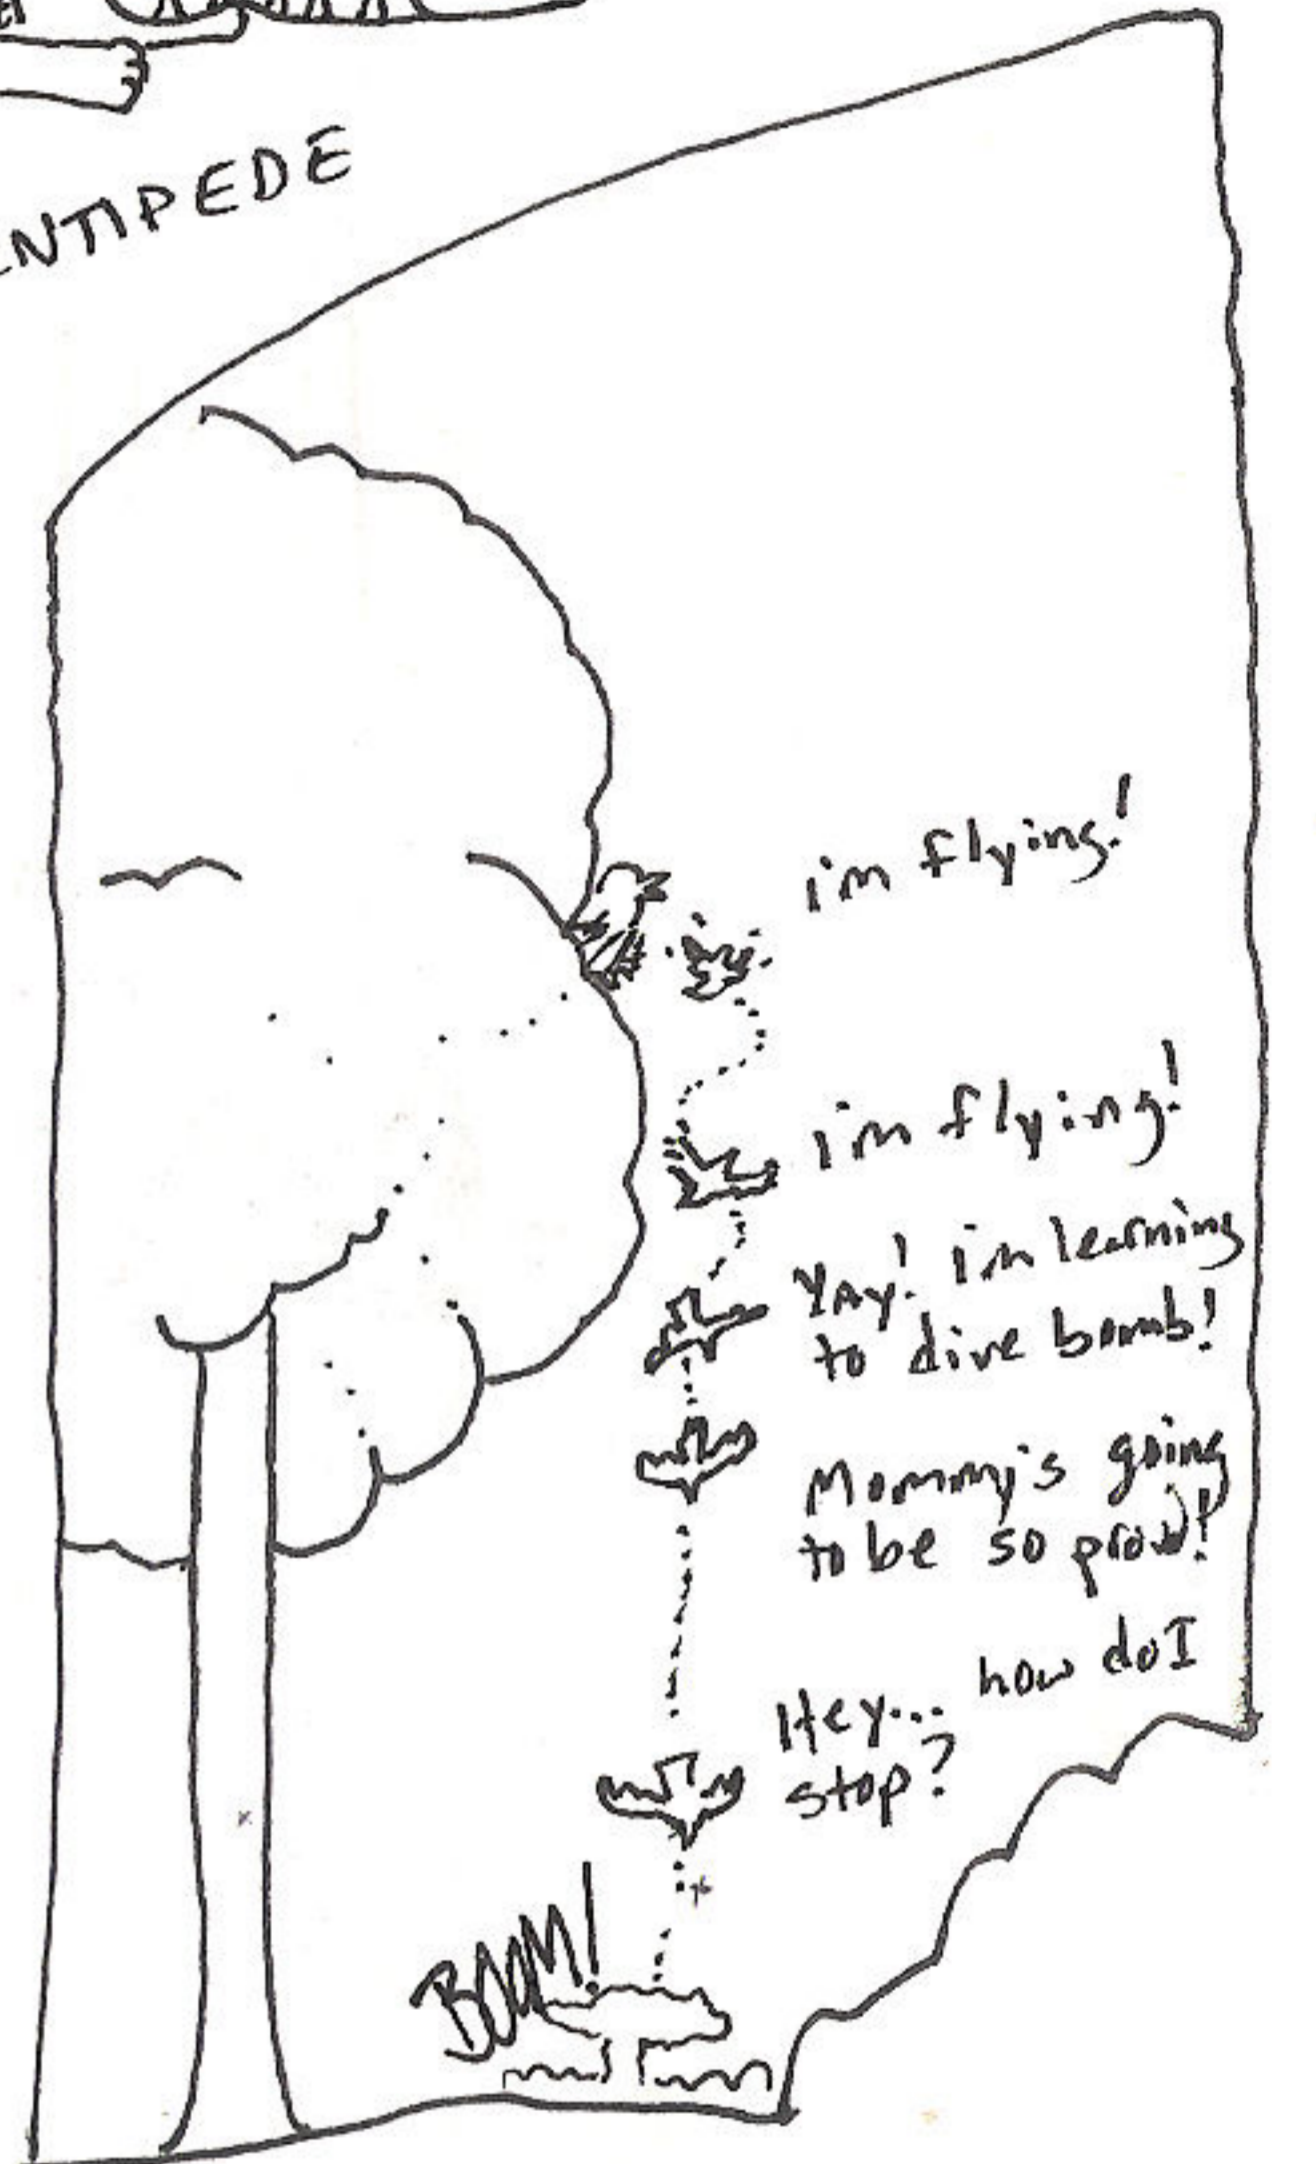 ENTIPEDE
i'm flying!
i'm flying!
YAy! i'm learning
to dive bomb!
Mommy's going
to be so proud!
Hey... how do I
stop?
BOOM!